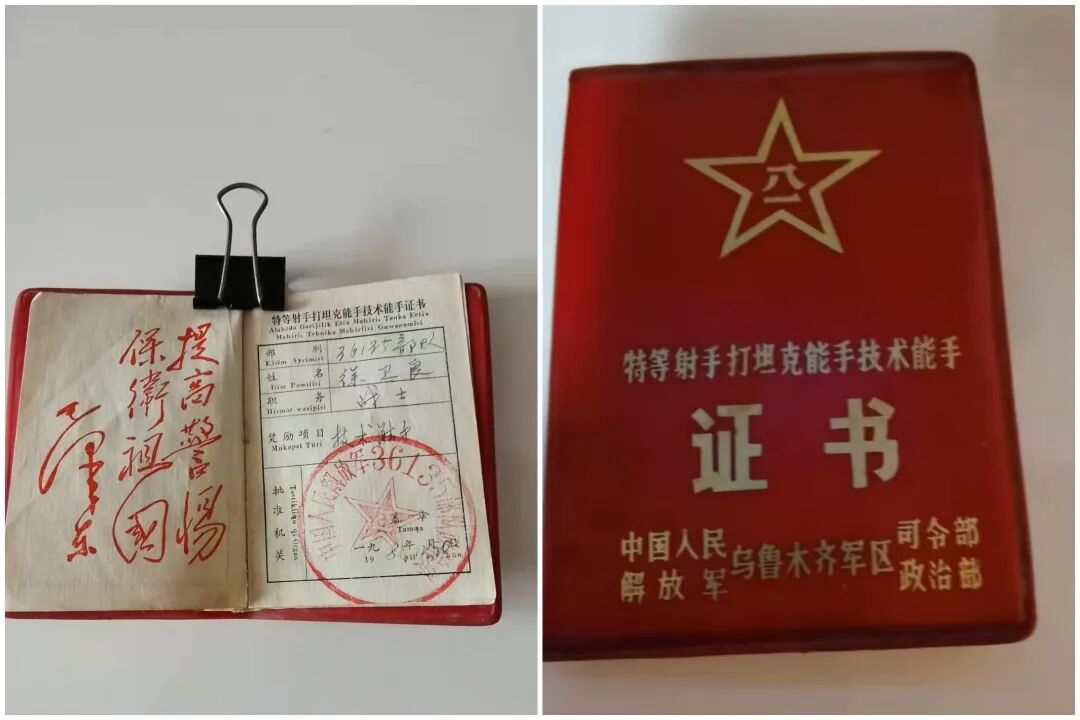 提高警惕
保衛祖國
毛澤东
特等射手打坦克能手技术能手证书
Alahida Darijilik Etix Mahiri, Tanka Etix
Mahiri, Tehnika Mahirliri Guwanamisi
部别 36135部队
Kisim Ayrimisi
姓名 徐卫良
Isim Pamilisi
职务 战士
Hizmat wazipisi
奖励项目 技术能手
Mukapat Türi
批准机关
Tastikliquqi Organ
中国人民解放军36135部队
盖章
Tamƣa
一九 年 月 日
19 yil ay kün
八一
特等射手打坦克能手技术能手
证书
中国人民解放军
乌鲁木齐军区
司令部
政治部